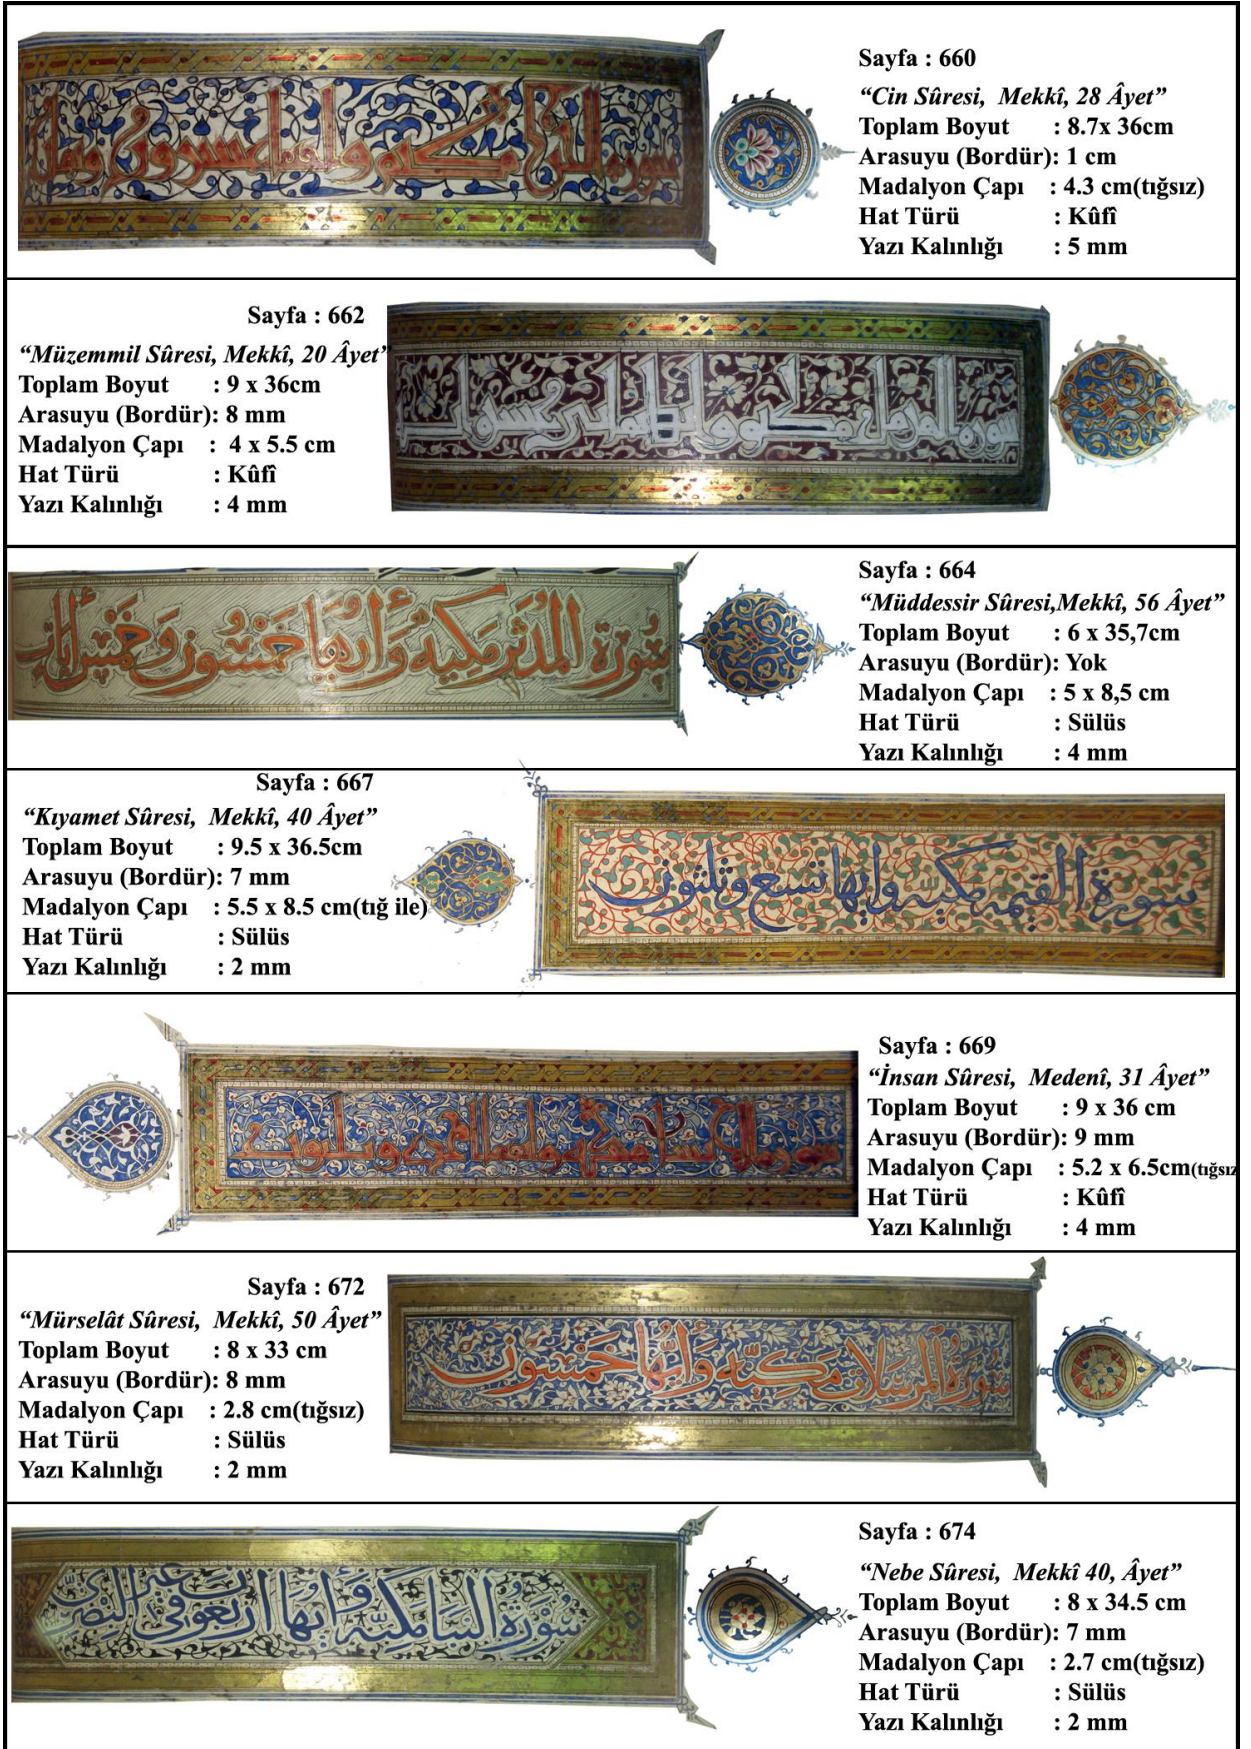 Sayfa : 660
“Cin Sûresi, Mekkî, 28 Âyet”
Toplam Boyut : 8.7x 36cm
Arasuyu (Bordür): 1 cm
Madalyon Çapı : 4.3 cm(tığsız)
Hat Türü : Kûfî
Yazı Kalınlığı : 5 mm
Sayfa : 662
“Müzemmil Sûresi, Mekkî, 20 Âyet”
Toplam Boyut : 9 x 36cm
Arasuyu (Bordür): 8 mm
Madalyon Çapı : 4 x 5.5 cm
Hat Türü : Kûfî
Yazı Kalınlığı : 4 mm
سورة المدثر مكية وآيها خمسون وخمس آيات
Sayfa : 664
“Müddessir Sûresi,Mekkî, 56 Âyet”
Toplam Boyut : 6 x 35,7cm
Arasuyu (Bordür): Yok
Madalyon Çapı : 5 x 8,5 cm
Hat Türü : Sülüs
Yazı Kalınlığı : 4 mm
Sayfa : 667
“Kıyamet Sûresi, Mekkî, 40 Âyet”
Toplam Boyut : 9.5 x 36.5cm
Arasuyu (Bordür): 7 mm
Madalyon Çapı : 5.5 x 8.5 cm(tığ ile)
Hat Türü : Sülüs
Yazı Kalınlığı : 2 mm
سورة القيمة مكية وايها تسع وثلثون
Sayfa : 669
“İnsan Sûresi, Medenî, 31 Âyet”
Toplam Boyut : 9 x 36 cm
Arasuyu (Bordür): 9 mm
Madalyon Çapı : 5.2 x 6.5cm(tığsız
Hat Türü : Kûfî
Yazı Kalınlığı : 4 mm
Sayfa : 672
“Mürselât Sûresi, Mekkî, 50 Âyet”
Toplam Boyut : 8 x 33 cm
Arasuyu (Bordür): 8 mm
Madalyon Çapı : 2.8 cm(tığsız)
Hat Türü : Sülüs
Yazı Kalınlığı : 2 mm
سورة المرسلات مكية وآيها خمسون
سورة النبأ مكية وآيها اربعون في غير البصري
Sayfa : 674
“Nebe Sûresi, Mekkî 40, Âyet”
Toplam Boyut : 8 x 34.5 cm
Arasuyu (Bordür): 7 mm
Madalyon Çapı : 2.7 cm(tığsız)
Hat Türü : Sülüs
Yazı Kalınlığı : 2 mm